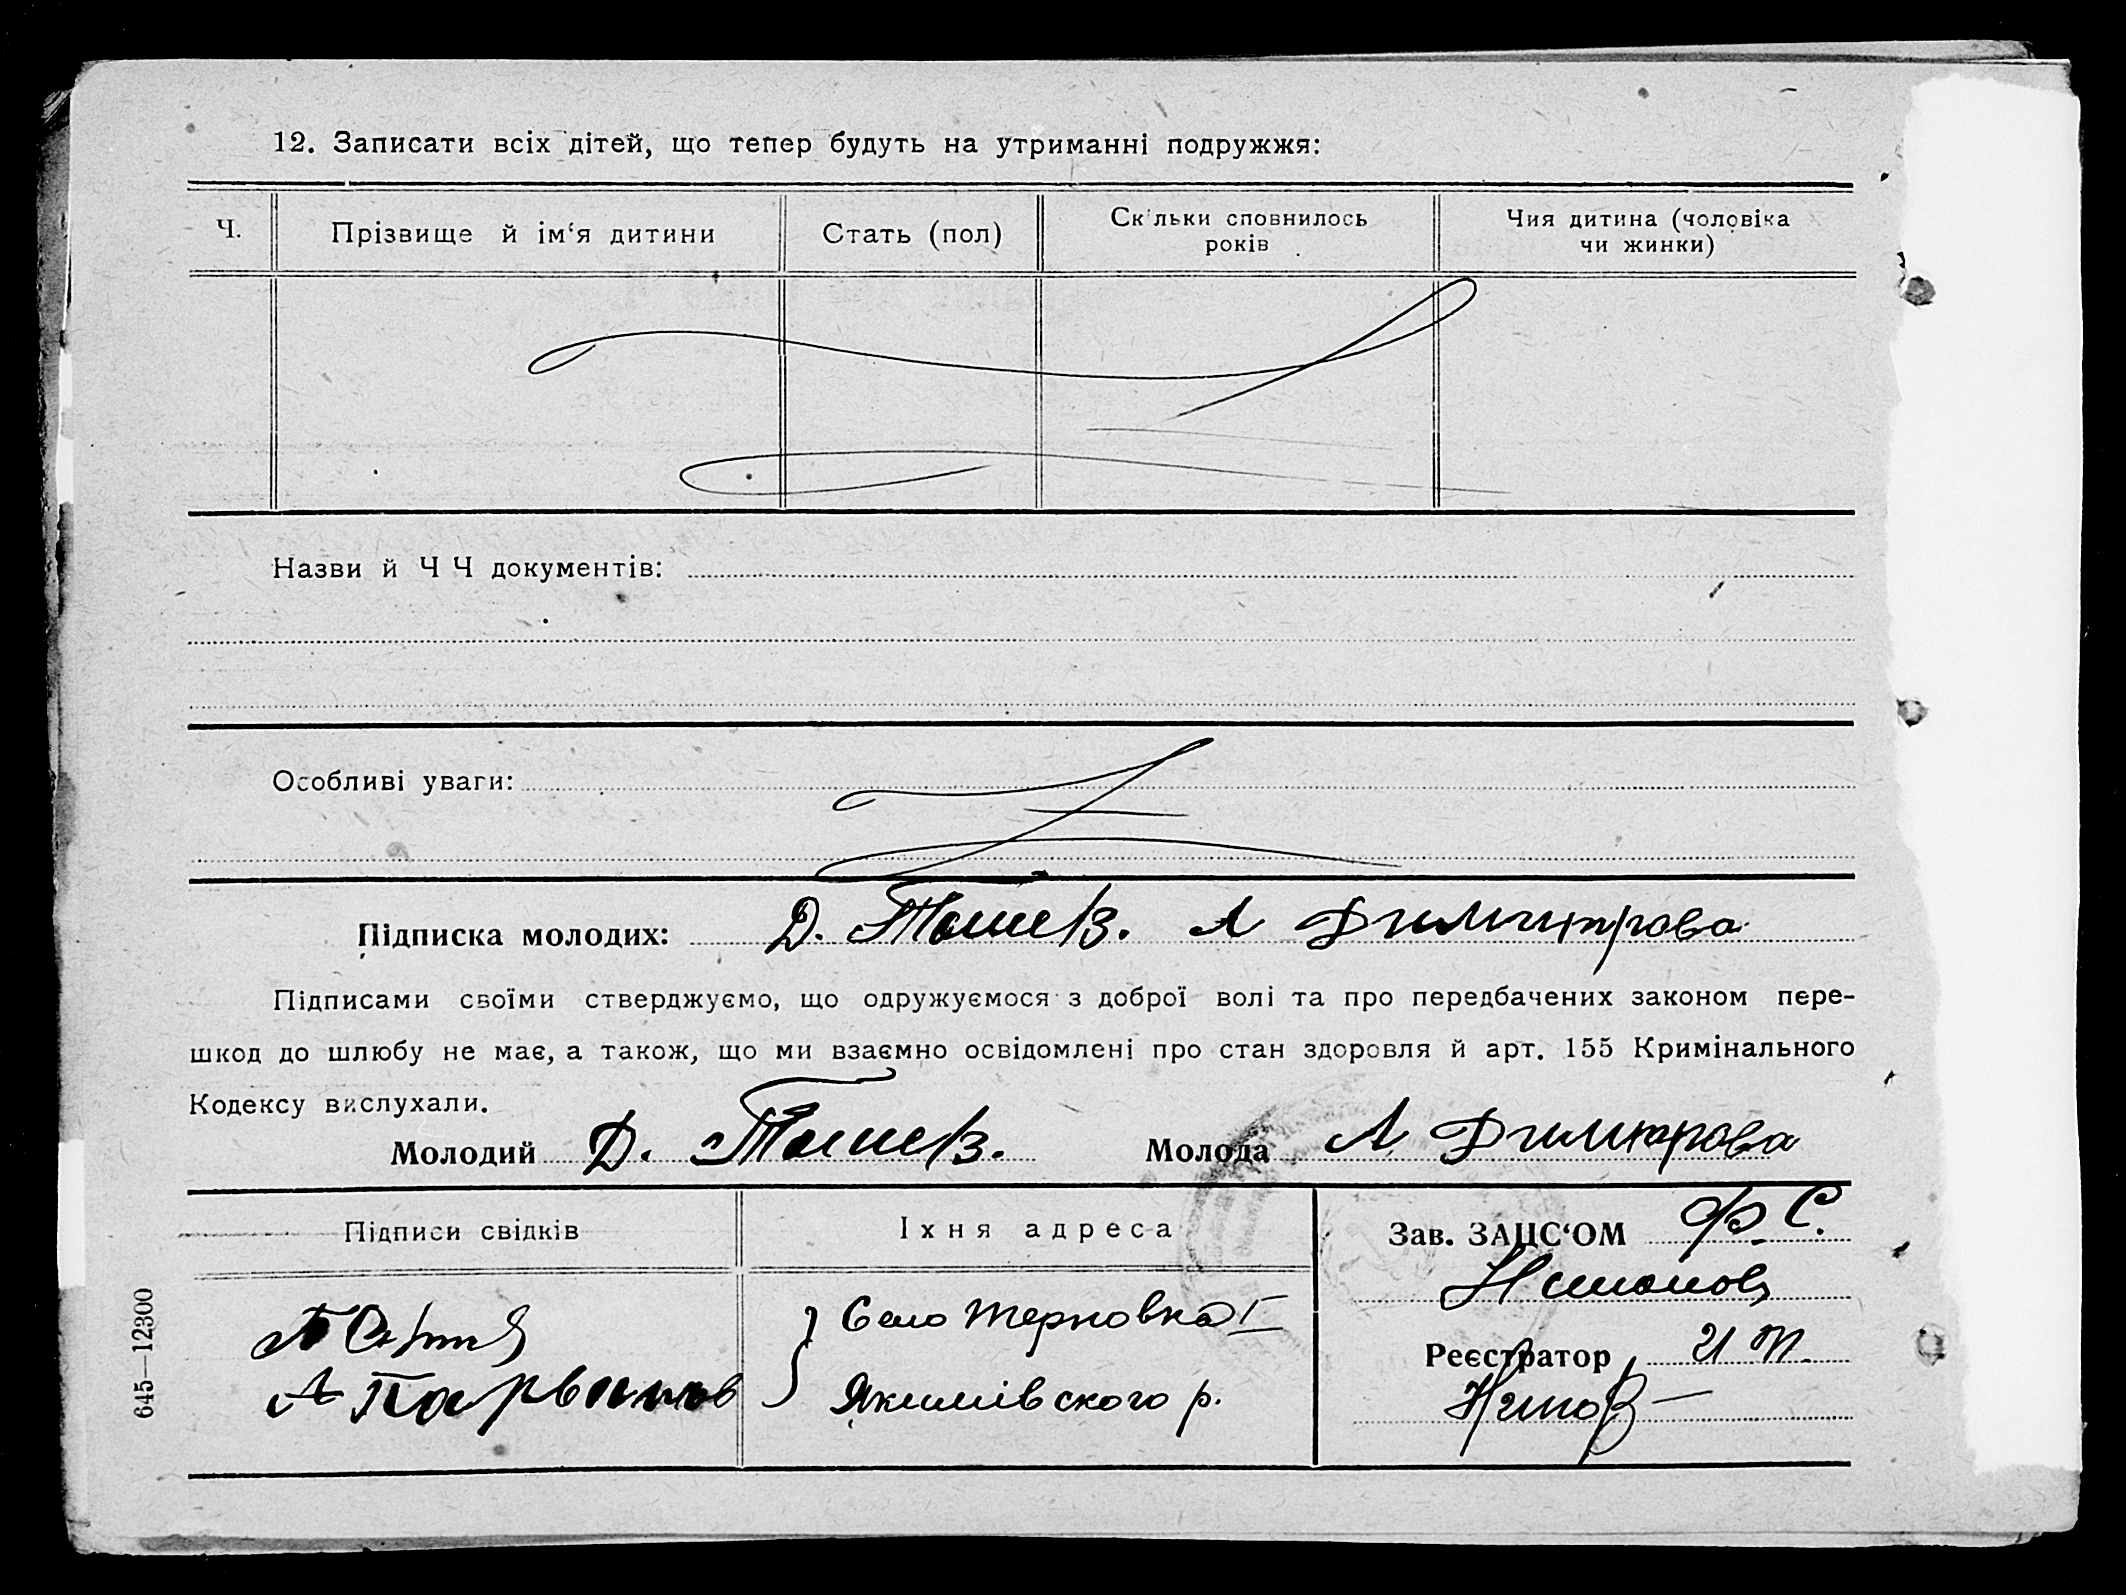 12. Записати всіх дітей, що тепер будуть на утриманні подружжя:
Ч.
Прізвище й ім‘я дитини
Стать (пол)
Скільки сповнилось
років
Чия дитина (чоловіка
чи жинки)
Назви й Ч Ч документів:
Особливі уваги:
Підписка молодих: Д. Ташев. А Димитрова
Підписами своїми стверджуємо, що одружуємося з доброї волі та про передбачених законом пере-
шкод до шлюбу не має, а також, що ми взаємно освідомлені про стан здоровля й арт. 155 Кримінального
Кодексу вислухали.
Молодий Д. Ташев. Молода А Димитрова
Підписи свідків
Їхня адреса
Зав. ЗАЦС‘ОМ Ф. С.
Село Терновка I
Реєстратор
А Парванов
Якимівского р.
645—12300